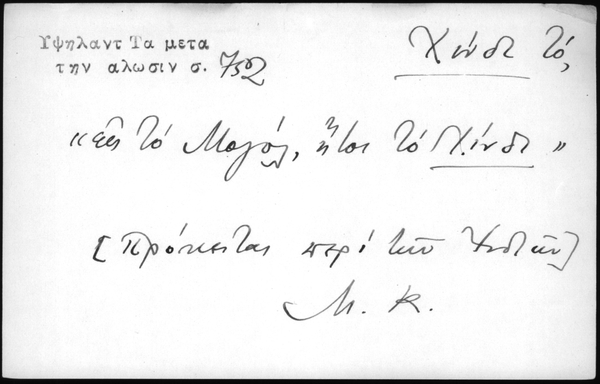 Υψηλαντ Τα μετα
την αλωσιν σ. 752
Χίνδι τό,
«εἰς τό Μογόλ, ἤτοι τό Χίνδι»
[Πρόκειται περί τῶν Ἰνδιῶν]
Μ. Κ.